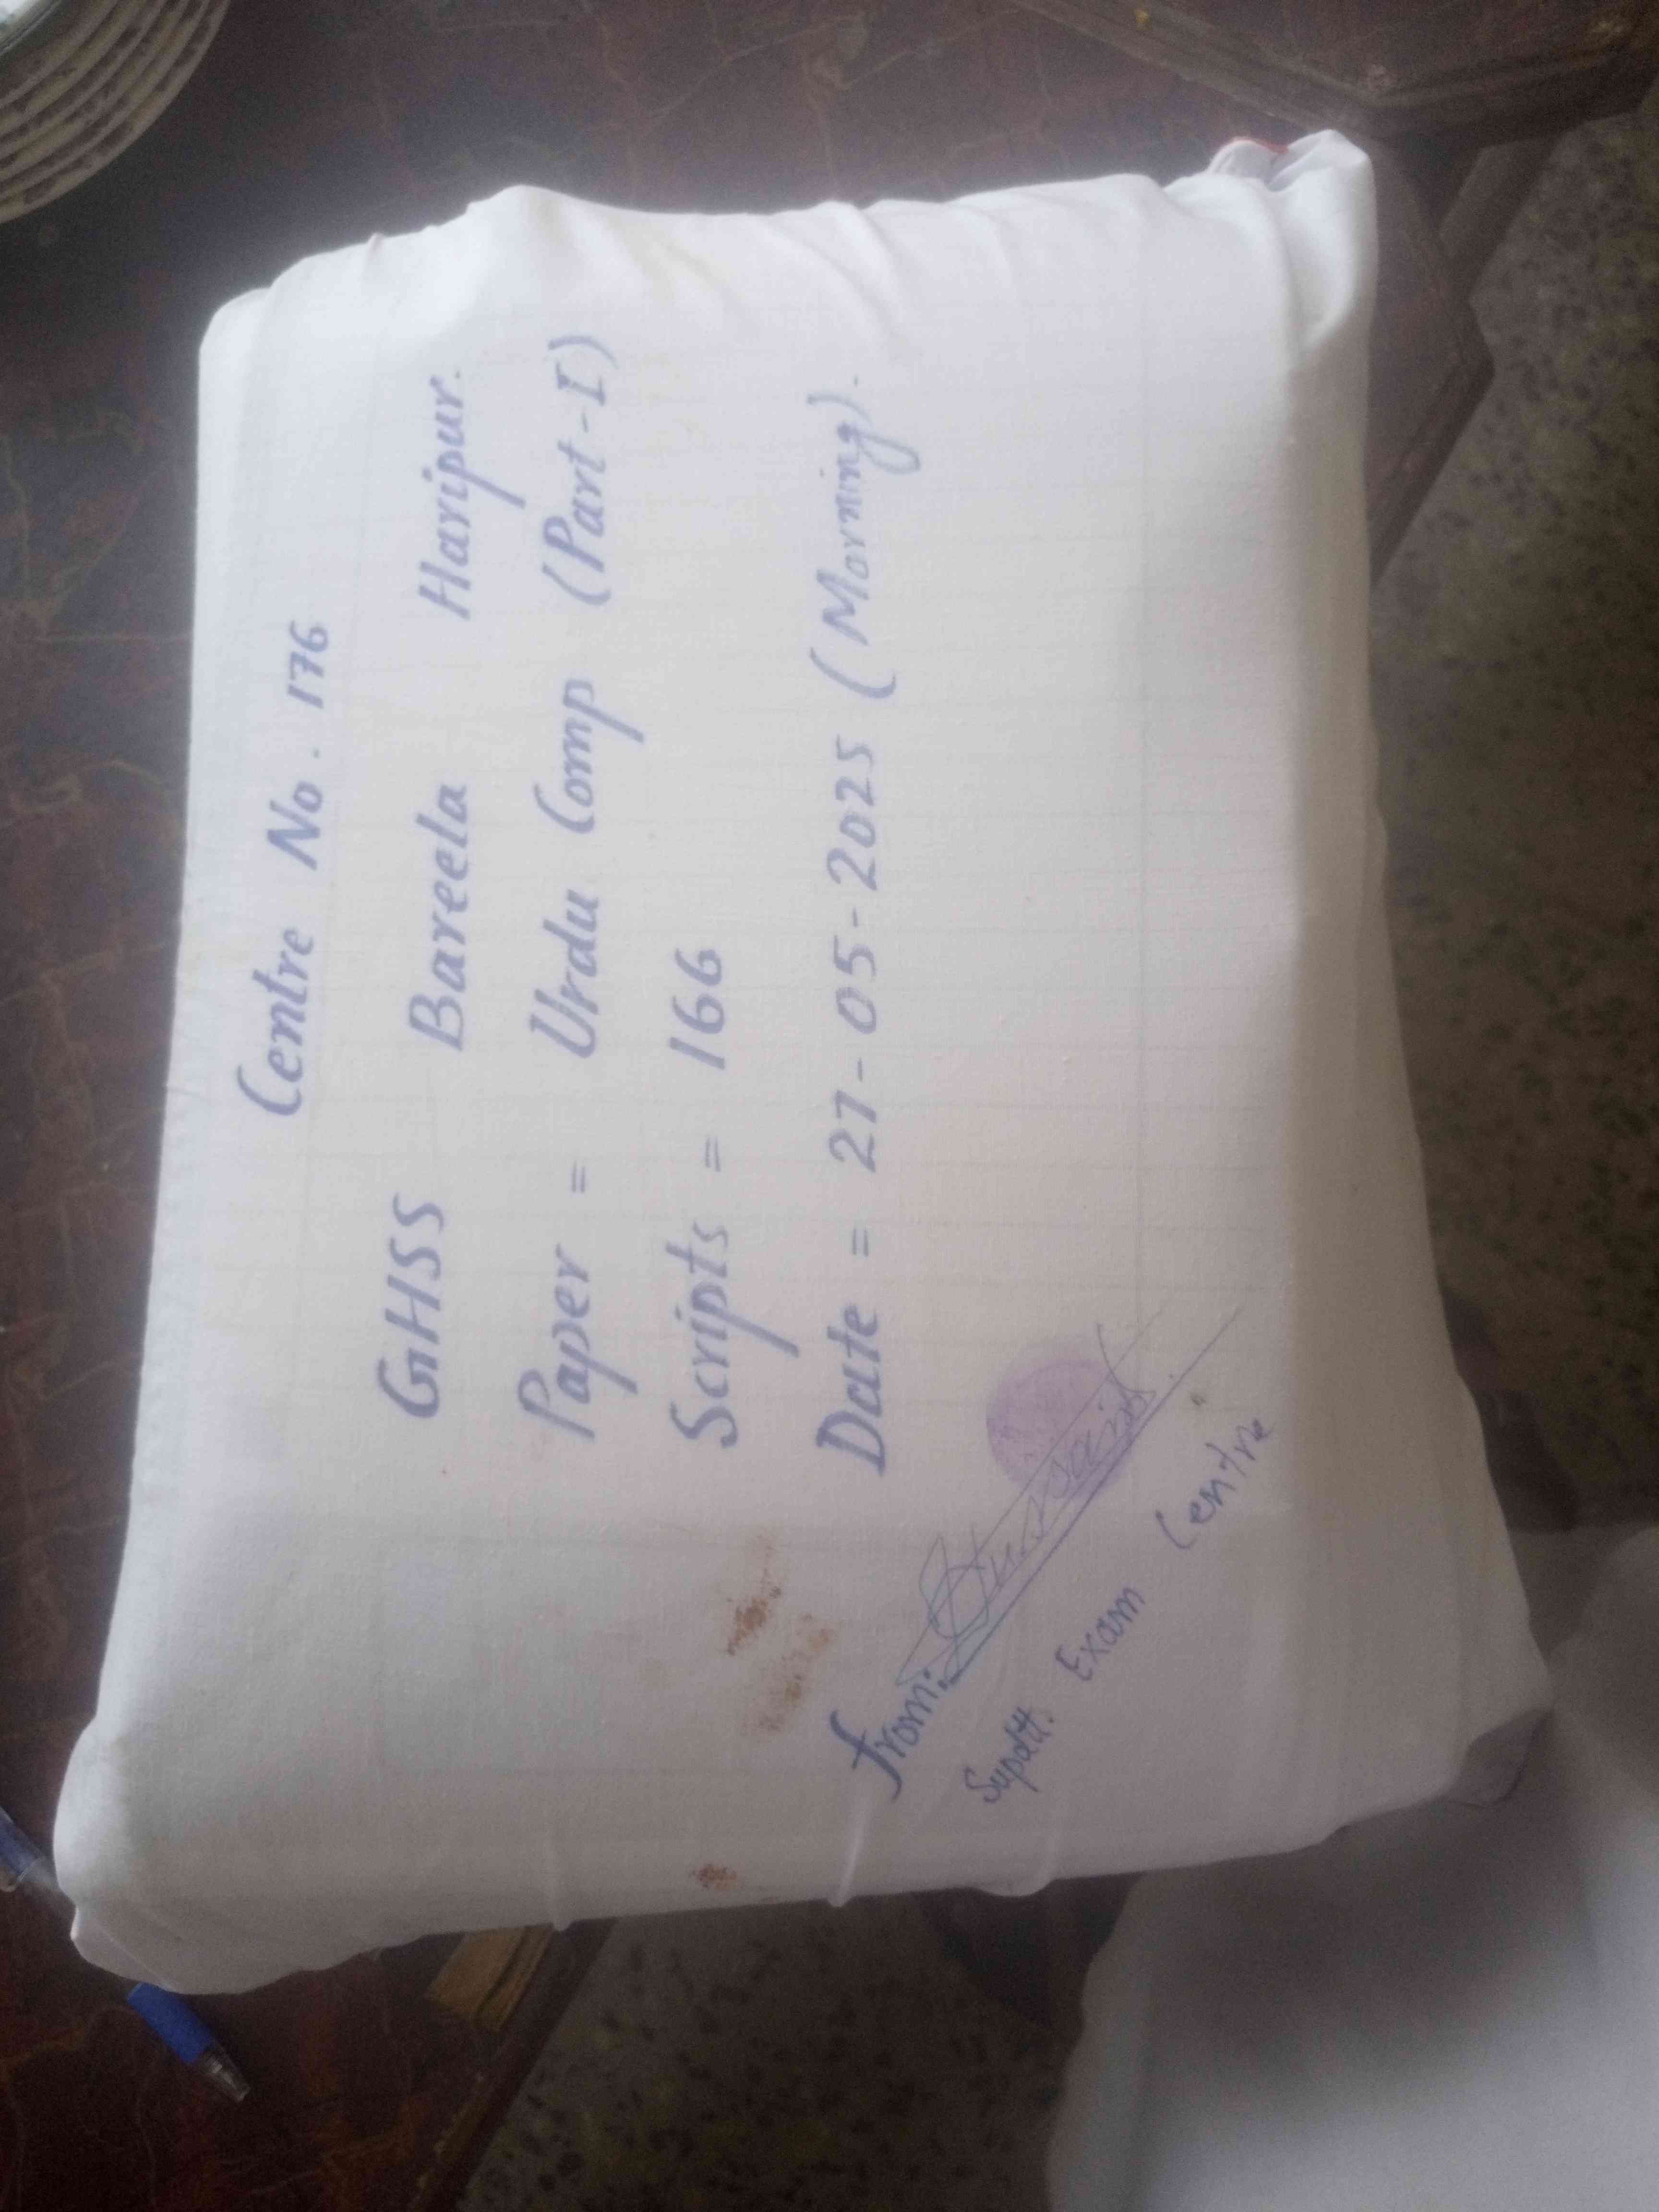 Centre No. 176
GHSS Bareela Haripur.
Paper = Urdu Comp (Part-I)
Scripts = 166
Date = 27-05-2025 (Morning).
from:
Supdtt. Exam Centre